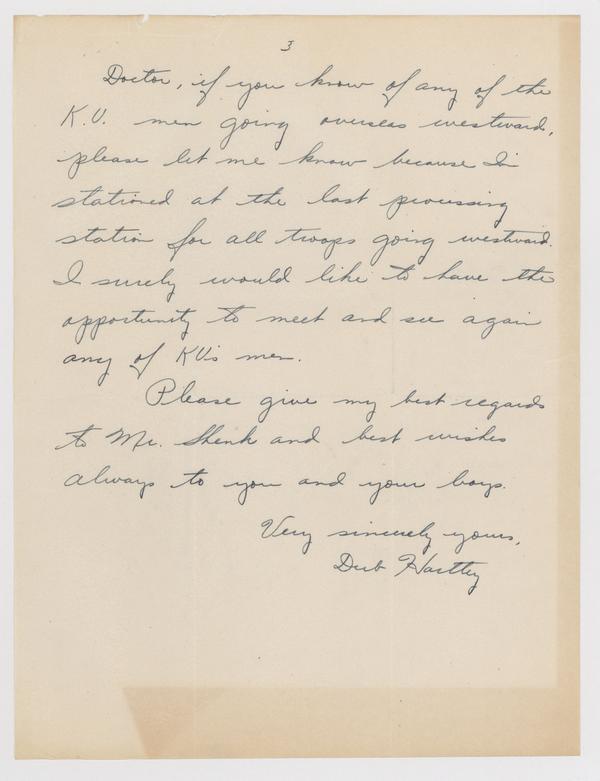 3
Doctor, if you know of any of the
K.U. men going overseas westward,
please let me know because I'm
stationed at the last processing
station for all troops going westward.
I surely would like to have the
opportunity to meet and see again
any of KU's men.
Please give my best regards
to Mr. Shenk and best wishes
always to you and your boys.
Very sincerely yours,
Dub Hartley